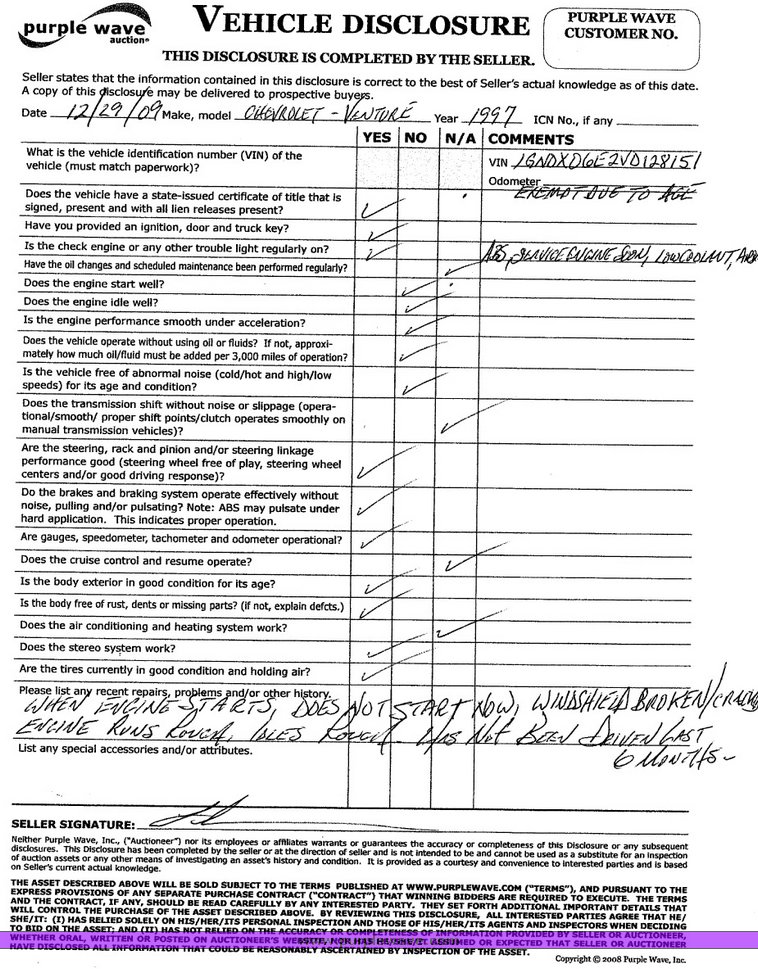 purple wave
auction®
VEHICLE DISCLOSURE
THIS DISCLOSURE IS COMPLETED BY THE SELLER.
PURPLE WAVE
CUSTOMER NO.
Seller states that the information contained in this disclosure is correct to the best of Seller's actual knowledge as of this date.
A copy of this disclosure may be delivered to prospective buyers.
Date 12/29/09 Make, model CHEVROLET - VENTURE Year 1997 ICN No., if any
YES NO N/A COMMENTS
What is the vehicle identification number (VIN) of the
vehicle (must match paperwork)?
VIN 1GNDX06E2VD128151
Odometer
EXEMPT DUE TO AGE
Does the vehicle have a state-issued certificate of title that is
signed, present and with all lien releases present?
Have you provided an ignition, door and truck key?
Is the check engine or any other trouble light regularly on? ABS, SERVICE ENGINE SOON, LOW COOLANT,
Have the oil changes and scheduled maintenance been performed regularly?
Does the engine start well?
Does the engine idle well?
Is the engine performance smooth under acceleration?
Does the vehicle operate without using oil or fluids? If not, approxi-
mately how much oil/fluid must be added per 3,000 miles of operation?
Is the vehicle free of abnormal noise (cold/hot and high/low
speeds) for its age and condition?
Does the transmission shift without noise or slippage (opera-
tional/smooth/ proper shift points/clutch operates smoothly on
manual transmission vehicles)?
Are the steering, rack and pinion and/or steering linkage
performance good (steering wheel free of play, steering wheel
centers and/or good driving response)?
Do the brakes and braking system operate effectively without
noise, pulling and/or pulsating? Note: ABS may pulsate under
hard application. This indicates proper operation.
Are gauges, speedometer, tachometer and odometer operational?
Does the cruise control and resume operate?
Is the body exterior in good condition for its age?
Is the body free of rust, dents or missing parts? (if not, explain defcts.)
Does the air conditioning and heating system work?
Does the stereo system work?
Are the tires currently in good condition and holding air?
Please list any recent repairs, problems and/or other history.
WHEN ENGINE STARTS, DOES NOT START NOW, WINDSHIELD BROKEN/
ENGINE RUNS ROUGH, IDLES ROUGH - HAS NOT BEEN DRIVEN LAST
6 MONTHS -
List any special accessories and/or attributes.
SELLER SIGNATURE:
Neither Purple Wave, Inc., ("Auctioneer") nor its employees or affiliates warrants or guarantees the accuracy or completeness of this Disclosure or any subsequent
disclosures. This Disclosure has been completed by the seller or at the direction of seller and is not intended to be and cannot be used as a substitute for an inspection
of auction assets or any other means of investigating an asset's history and condition. It is provided as a courtesy and convenience to interested parties and is based
on Seller's current actual knowledge.
THE ASSET DESCRIBED ABOVE WILL BE SOLD SUBJECT TO THE TERMS PUBLISHED AT WWW.PURPLEWAVE.COM ("TERMS"), AND PURSUANT TO THE
EXPRESS PROVISIONS OF ANY SEPARATE PURCHASE CONTRACT ("CONTRACT") THAT WINNING BIDDERS ARE REQUIRED TO EXECUTE. THE TERMS
AND THE CONTRACT, IF ANY, SHOULD BE READ CAREFULLY BY ANY INTERESTED PARTY. THEY SET FORTH ADDITIONAL IMPORTANT DETAILS THAT
WILL CONTROL THE PURCHASE OF THE ASSET DESCRIBED ABOVE. BY REVIEWING THIS DISCLOSURE, ALL INTERESTED PARTIES AGREE THAT HE/
SHE/IT: (I) HAS RELIED SOLELY ON HIS/HER/ITS PERSONAL INSPECTION AND THOSE OF HIS/HER/ITS AGENTS AND INSPECTORS WHEN DECIDING
TO BID ON THE ASSET; AND (II) HAS NOT RELIED ON THE ACCURACY OR COMPLETENESS OF INFORMATION PROVIDED BY SELLER OR AUCTIONEER,
WHETHER ORAL, WRITTEN OR POSTED ON AUCTIONEER'S OR EXPECTED THAT SELLER OR AUCTIONEER
HAVE DISCLOSED ALL INFORMATION THAT COULD BE REASONABLY ASCERTAINED BY INSPECTION OF THE ASSET.
Copyright © 2008 Purple Wave, Inc.